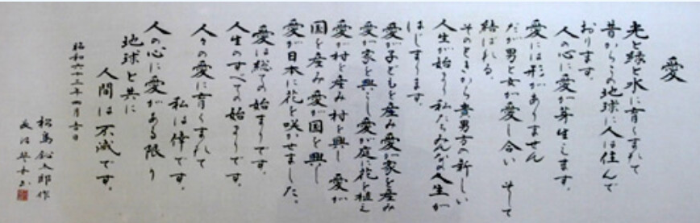 愛
光と緑と水に育くまれて
昔からこの地球に人は住んで
おります。
人の心に愛が芽生えます。
愛には形がありません
だが男と女が愛し合い そして
結ばれる。
そのときから貴男方の新しい
人生が始まり私たちみんなの人生が
はじまります。
愛が子どもを産み愛が家を産み
愛が家を興し愛が庭に花を植え
愛が村を産み村を興し 愛が
国を産み愛が国を興し
愛が日本に花を咲かせました。
愛は総ての始まりです。
人生のすべての始まりです。
人々の愛に育くまれて
私は倖です。
人の心に愛がある限り
地球と共に
人間は不滅です。
昭和六十三年四月吉日
松島
作